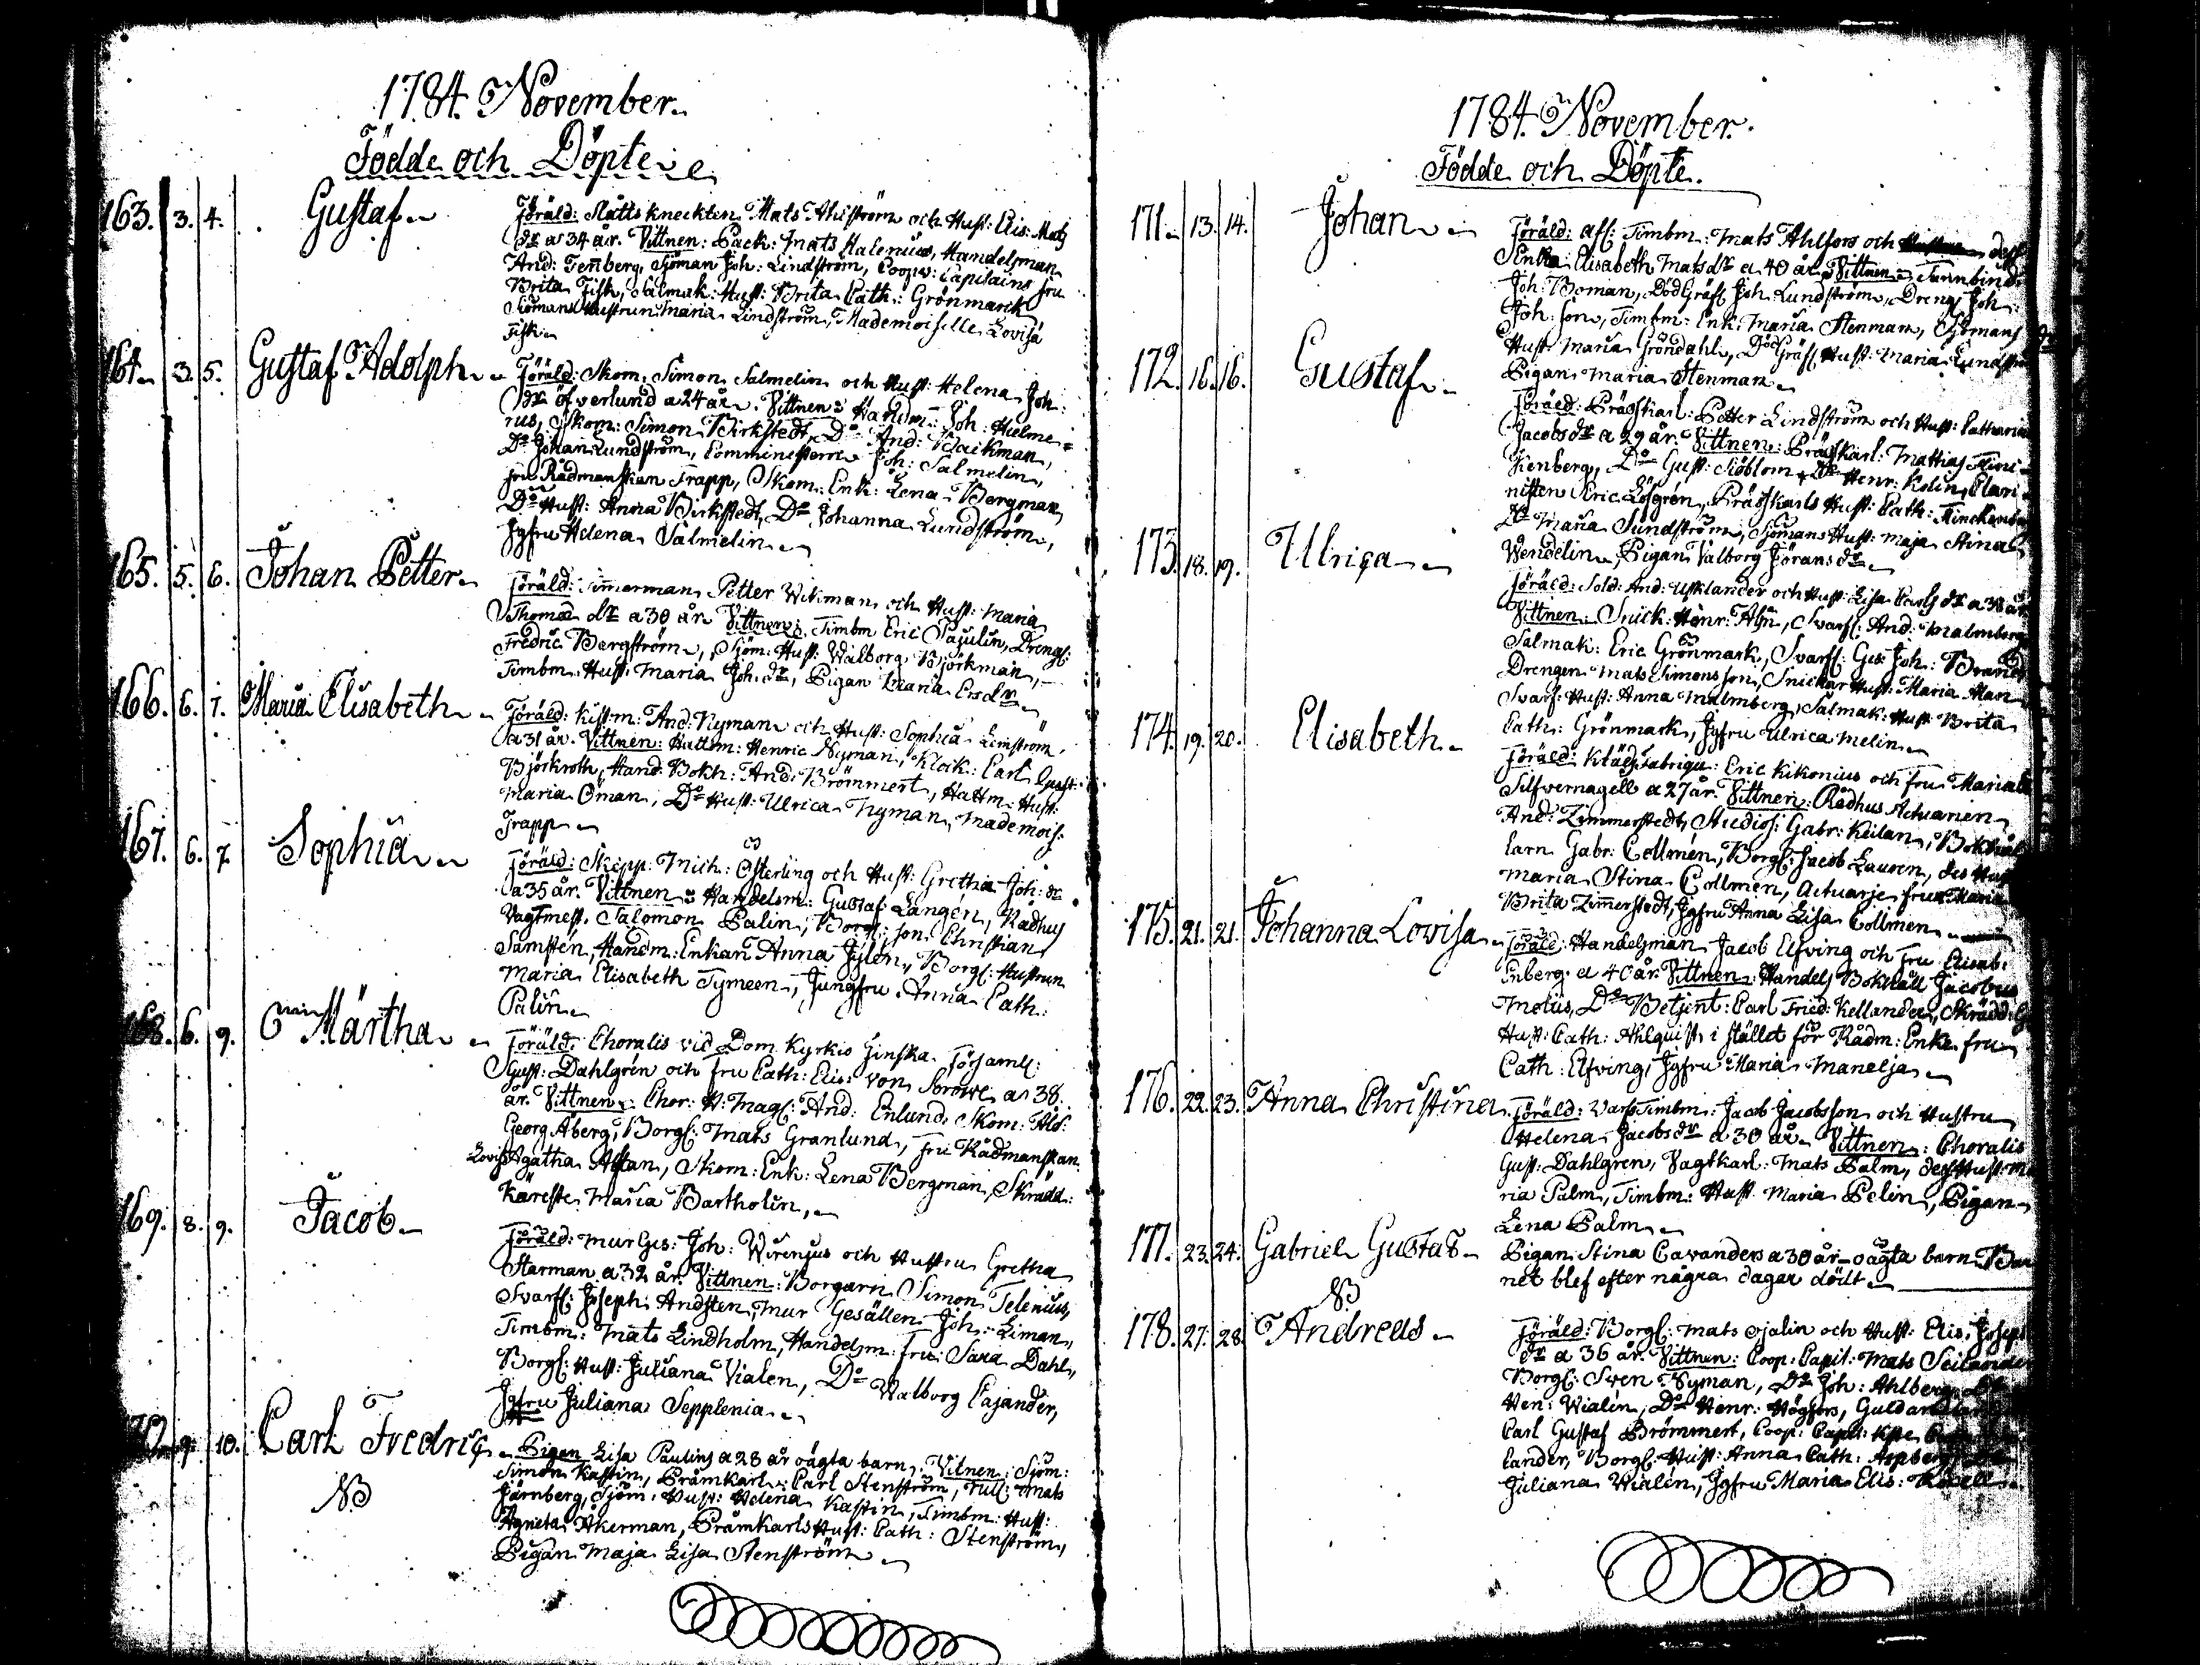 1784. November.
Födde och Döpte.
163. 3. 4. Gustaf
Föräld: Slåtts kneckten Mats Ahlström och Hust: Elis: Mats
dr a 34 år. Vittnen: Pack: Mats Malenius, Handelsman
And: Tenberg, Sjöman Joh: Lindström, Coopv: Capitains fru
Brita Fisk, Salmak: Hust: Brita Cath: Grönmark
Siömans Hustrun Maria Lindström, Mademoiselle Lovisa
Fisk.
164. 3. 5. Gustaf Adolph
Föräld: Skom. Simon Salmelin och Hust: Helena Joh:
dr öfverlund a 24 år. Vittnen: Handm: Joh: Hielme=
rus, Skom: Simon Birkstedt, Do And: Backman,
Do Johan Lundström, Comministern Joh: Salmelin,
fru Rådmanskan Trapp, Skom: Enk: Lena Bergman,
Do Hust: Anna Birkstedt, Do Johanna Lundström,
Jgfru Helena Salmelin
165. 5. 6. Johan Petter
Föräld: Timmerman Petter Wikman och Hust: Maria
Thomas dr a 30 år Vittnen: Timbm Eric Paulin, Drengs:
Fredric Bergström, Sjöm: Hust: Walborg Björkman,
Timbm. Hust: Maria Joh. dr, Pigan Maria Ersdr
166. 6. 7. Maria Elisabeth
Föräld: Kistm: And: Nyman och Hust: Sophia Lemström
a 31 år. Vittnen: Hattm: Henric Nyman, Klock: Carl Gust:
Björkroth, Hand: Bokh: And: Brömmert, Hattm: Hust:
Maria Öman, Do Hust: Ulrica Nyman, Mademois:
Trapp
167. 6. 7 Sophia
Föräld: Skepp: Mich: Österling och Hust: Gretha Joh: dr
a 35 år. Vittnen: Handelsm: Gustaf Langén, Rådhus
Vagtmest. Salomon Palin, Borg: son Christian
Samstén, Handm: Enkan Anna Jylén, Borg: Hustrun
Maria Elisabeth Tymeen, Jungfru Anna Cath:
Palin
168. 6. 9. Märtha
Föräld: Choralis vid Dom Kyrkio Finska Församl:
Gust: Dahlgrén och Fru Cath: Elis: von Sorowe a 38.
år. Vittnen: Chor: H: Mag: And: Enlund, Skom: Åld:
Georg Åberg, Borg: Mats Granlund, Fru Rådmanskan
Lovis Agatha Alftan, Skom: Enk: Lena Bergman, Skrädd:
Käreste Maria Bartholin,
169. 8. 9. Jacob
Föräld: Mur Ges: Joh: Wirenjus och Hustru Gretha
Starman a 32 år. Vittnen: Borgarn Simon Telenius,
Svarfs: Joseph Andsten, Mur Gesällen Joh: Liman,
Timbm: Mats Lindholm, Handelsm: fru Sara Dahl,
Borg: Hust: Juliana Vialen, Do Walborg Cajander,
Jgfru Juliana Sepplenia
170. 9. 10. Carl Fredric
Pigan Lisa Paulins a 28 år oägta barn. Vitnen: Sjöm:
NB
Simon Kastin, Pråmkarl: Carl Stenström, Tull: Mats
Järnberg, Sjöm: Hust: Helena Kastin, Timbm: Hust:
Agneta Åkerman, Pråmkarls Hust: Cath: Stenström,
Pigan Maja Lisa Stenström
1784. November.
Födde och Döpte.
171. 13. 14. Johan
Föräld: afs: Timbm: Mats Ahlfors och dess
Enka Elisabeth Matsdr a 40 år. Vittnen: Tunnbind:
Joh: Boman, Död Gräf: Joh: Lundström, Dreng: Joh:
Joh: son, Timbm: Enk: Maria Stenman, Sjömans
Hust: Maria Gröndahl, Död Gräf: Hust: Maria Lundström
Pigan Maria Stenman
172. 16. 16. Gustaf
Föräld: Prässkarl: Petter Lindström och Hust: Catharina
Jacobsdr a 29 år. Vittnen: Prässkarl: Mattias Finc=
kenberg, Do Gust: Siöblom, Do Henr: Kolin, Clari=
nisten Eric Löfgrén, Prässkarls Hust: Cath: Finckenberg
Do Maria Sundström, Sjömans Hust: Maja Stina
Wendelin, Pigan Valborg Jöransdr
173. 18. 19. Ulrica
Föräld: Sold: And: Usklander och Hust: Lisa Carls dr a 38 år
Vittnen: Snick: Henr: Alm, Svarf: And: Malmberg
Salmak: Eric Grönmark, Svarf: Ges: Joh: Brander
Drengen Mats Simonsson, Snickar Hust: Maria Alm
Svarf: Hust: Anna Malmberg, Salmak: Hust: Brita
Cath: Grönmark, Jgfru Ulrica Melin
174. 19. 20. Elisabeth
Föräld: Klädsfabriqu: Eric Kikonius och Fru Maria
Silfvernagell a 27 år. Vittnen: Rådhus Actuarien
And: Zimmerstedt, Studios: Gabr: Keilan, Bokhål
larn Gabr: Collmén, Borg: Jacob Lauren, des Hust
Maria Stina Collmén, Actuarje frun Maria
Brita Zimerstedt, Jgfru Anna Lisa Collmen
175. 21. 21. Johanna Lovisa
Föräld: Handelsman Jacob Elfving och Fru Elisab:
Enberg a 40 år. Vittnen: Handels Bokhåll Jacobus
Moliis, Do Betjent: Carl Fried: Kellander, Skrädd:
Hust: Cath: Ahlquist i stället för Rådm: Enke fru
Cath: Elfving, Jgfru Maria Manelja
176. 22. 23. Anna Christina
Föräld: Varfs Timbm: Jacob Jacobsson och Hustru
Helena Jacobsdr a 30 år. Vittnen: Choralis
Gust: Dahlgren, Vagtkarl: Mats Palm, dess Hust: Ma
ria Palm, Timbm: Hust Maria Pelin, Pigan
Lena Palm
177. 23. 24. Gabriel Gustaf
NB
Pigan Stina Cavanders a 30 år oägta barn. Bar
net blef efter några dagar dödt
178. 27. 28 Andreas
Föräld: Borg: Mats Ojalin och Hust: Elis: Joseps
dr a 36 år. Vittnen: Coop: Capit: Mats Seilander
Borg: Sven Nyman, Do Joh: Ahlberg, Do
Hen: Wialén, Do Henr: Högfors, Guldar
Carl Gustaf Brömmert, Coop: Capit:
lander, Borg: Hust: Anna Cath: Aspberg
Juliana Wialén, Jgfru Maria Elis: